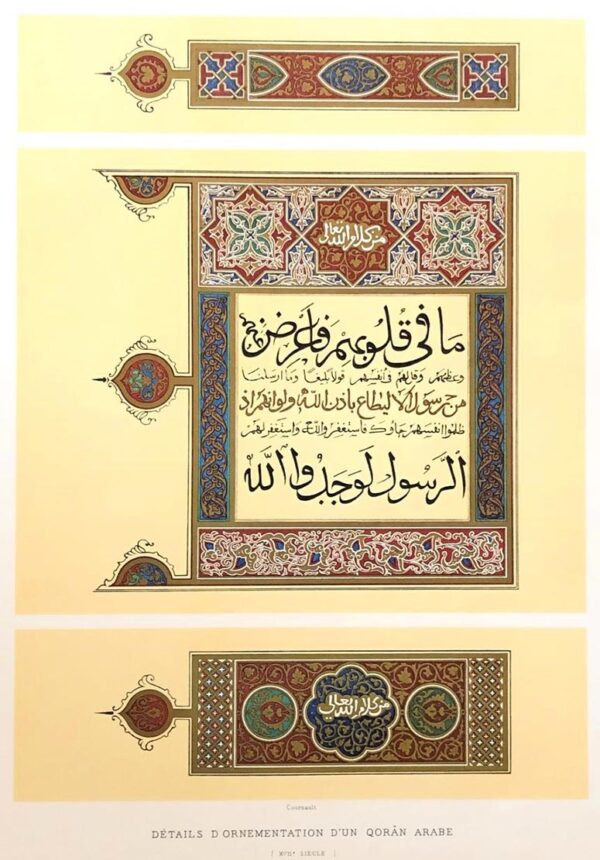 من كلام الله تعالى
ما فى قلوبهم فاعرض
وعظهم وقل لهم فى انفسهم قولا بليغا وما ارسلنا
من رسول الا ليطاع باذن الله ولو انهم اذ
ظلموا انفسهم جاوك فاستغفروا الله واستغفر لهم
الرسول لوجدوا الله
من كلام الله تعالى
Cournault
DÉTAILS D'ORNEMENTATION D'UN QORÂN ARABE
[ XVIIe SIÈCLE ]